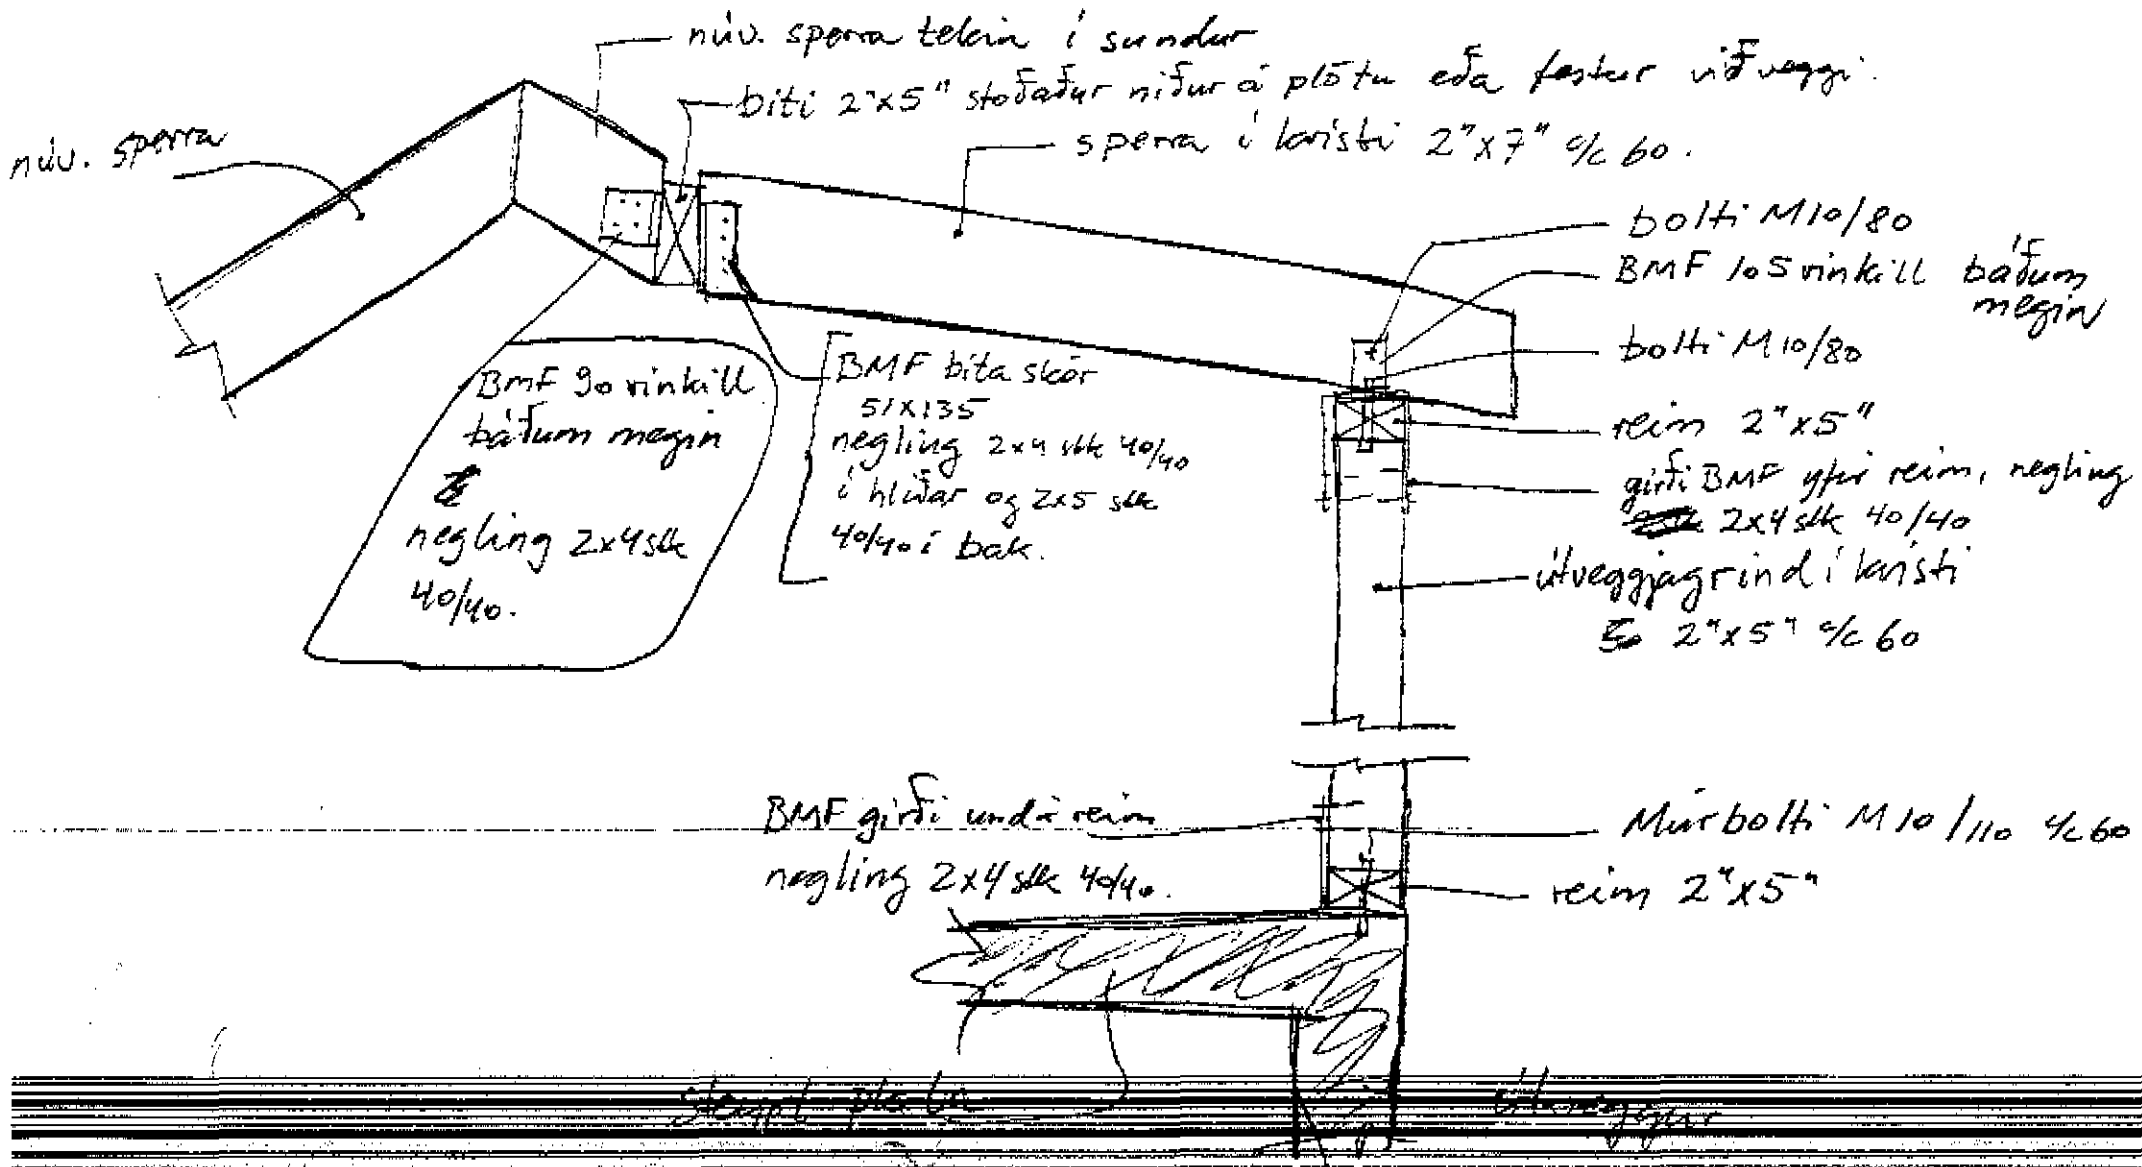 núv. sperra tekin í sundur
biti 2"x5" stoðaður niður á plötu eða festur við veggi.
núv. sperra
sperra í kvisti 2"x7" c/c 60.
bolti M10/80
BMF 105 vinkill báðum
megin
bolti M10/80
reim 2"x5"
girði BMF yfir reim, negling
2x4 stk 40/40
útveggjagrind í kvisti
2"x5" c/c 60
BMF 90 vinkill
báðum megin
negling 2x4 stk
40/40.
BMF bita skór
51x135
negling 2x4 stk 40/40
í hliðar og 2x5 stk
40/40 í bak.
BMF girði undir reim
negling 2x4 stk 40/40.
Múrbolti M10/110 c/c 60
reim 2"x5"
steypt plata